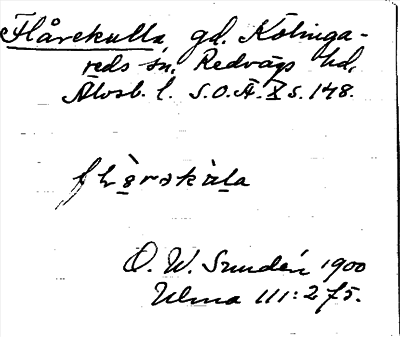 Flårekulla, gd. Kölinga-
reds sn, Redvägs hd,
Älvsb. l. S.O.Ä. X s. 148.
O. W. Sundén 1900
Ulma 111:275.